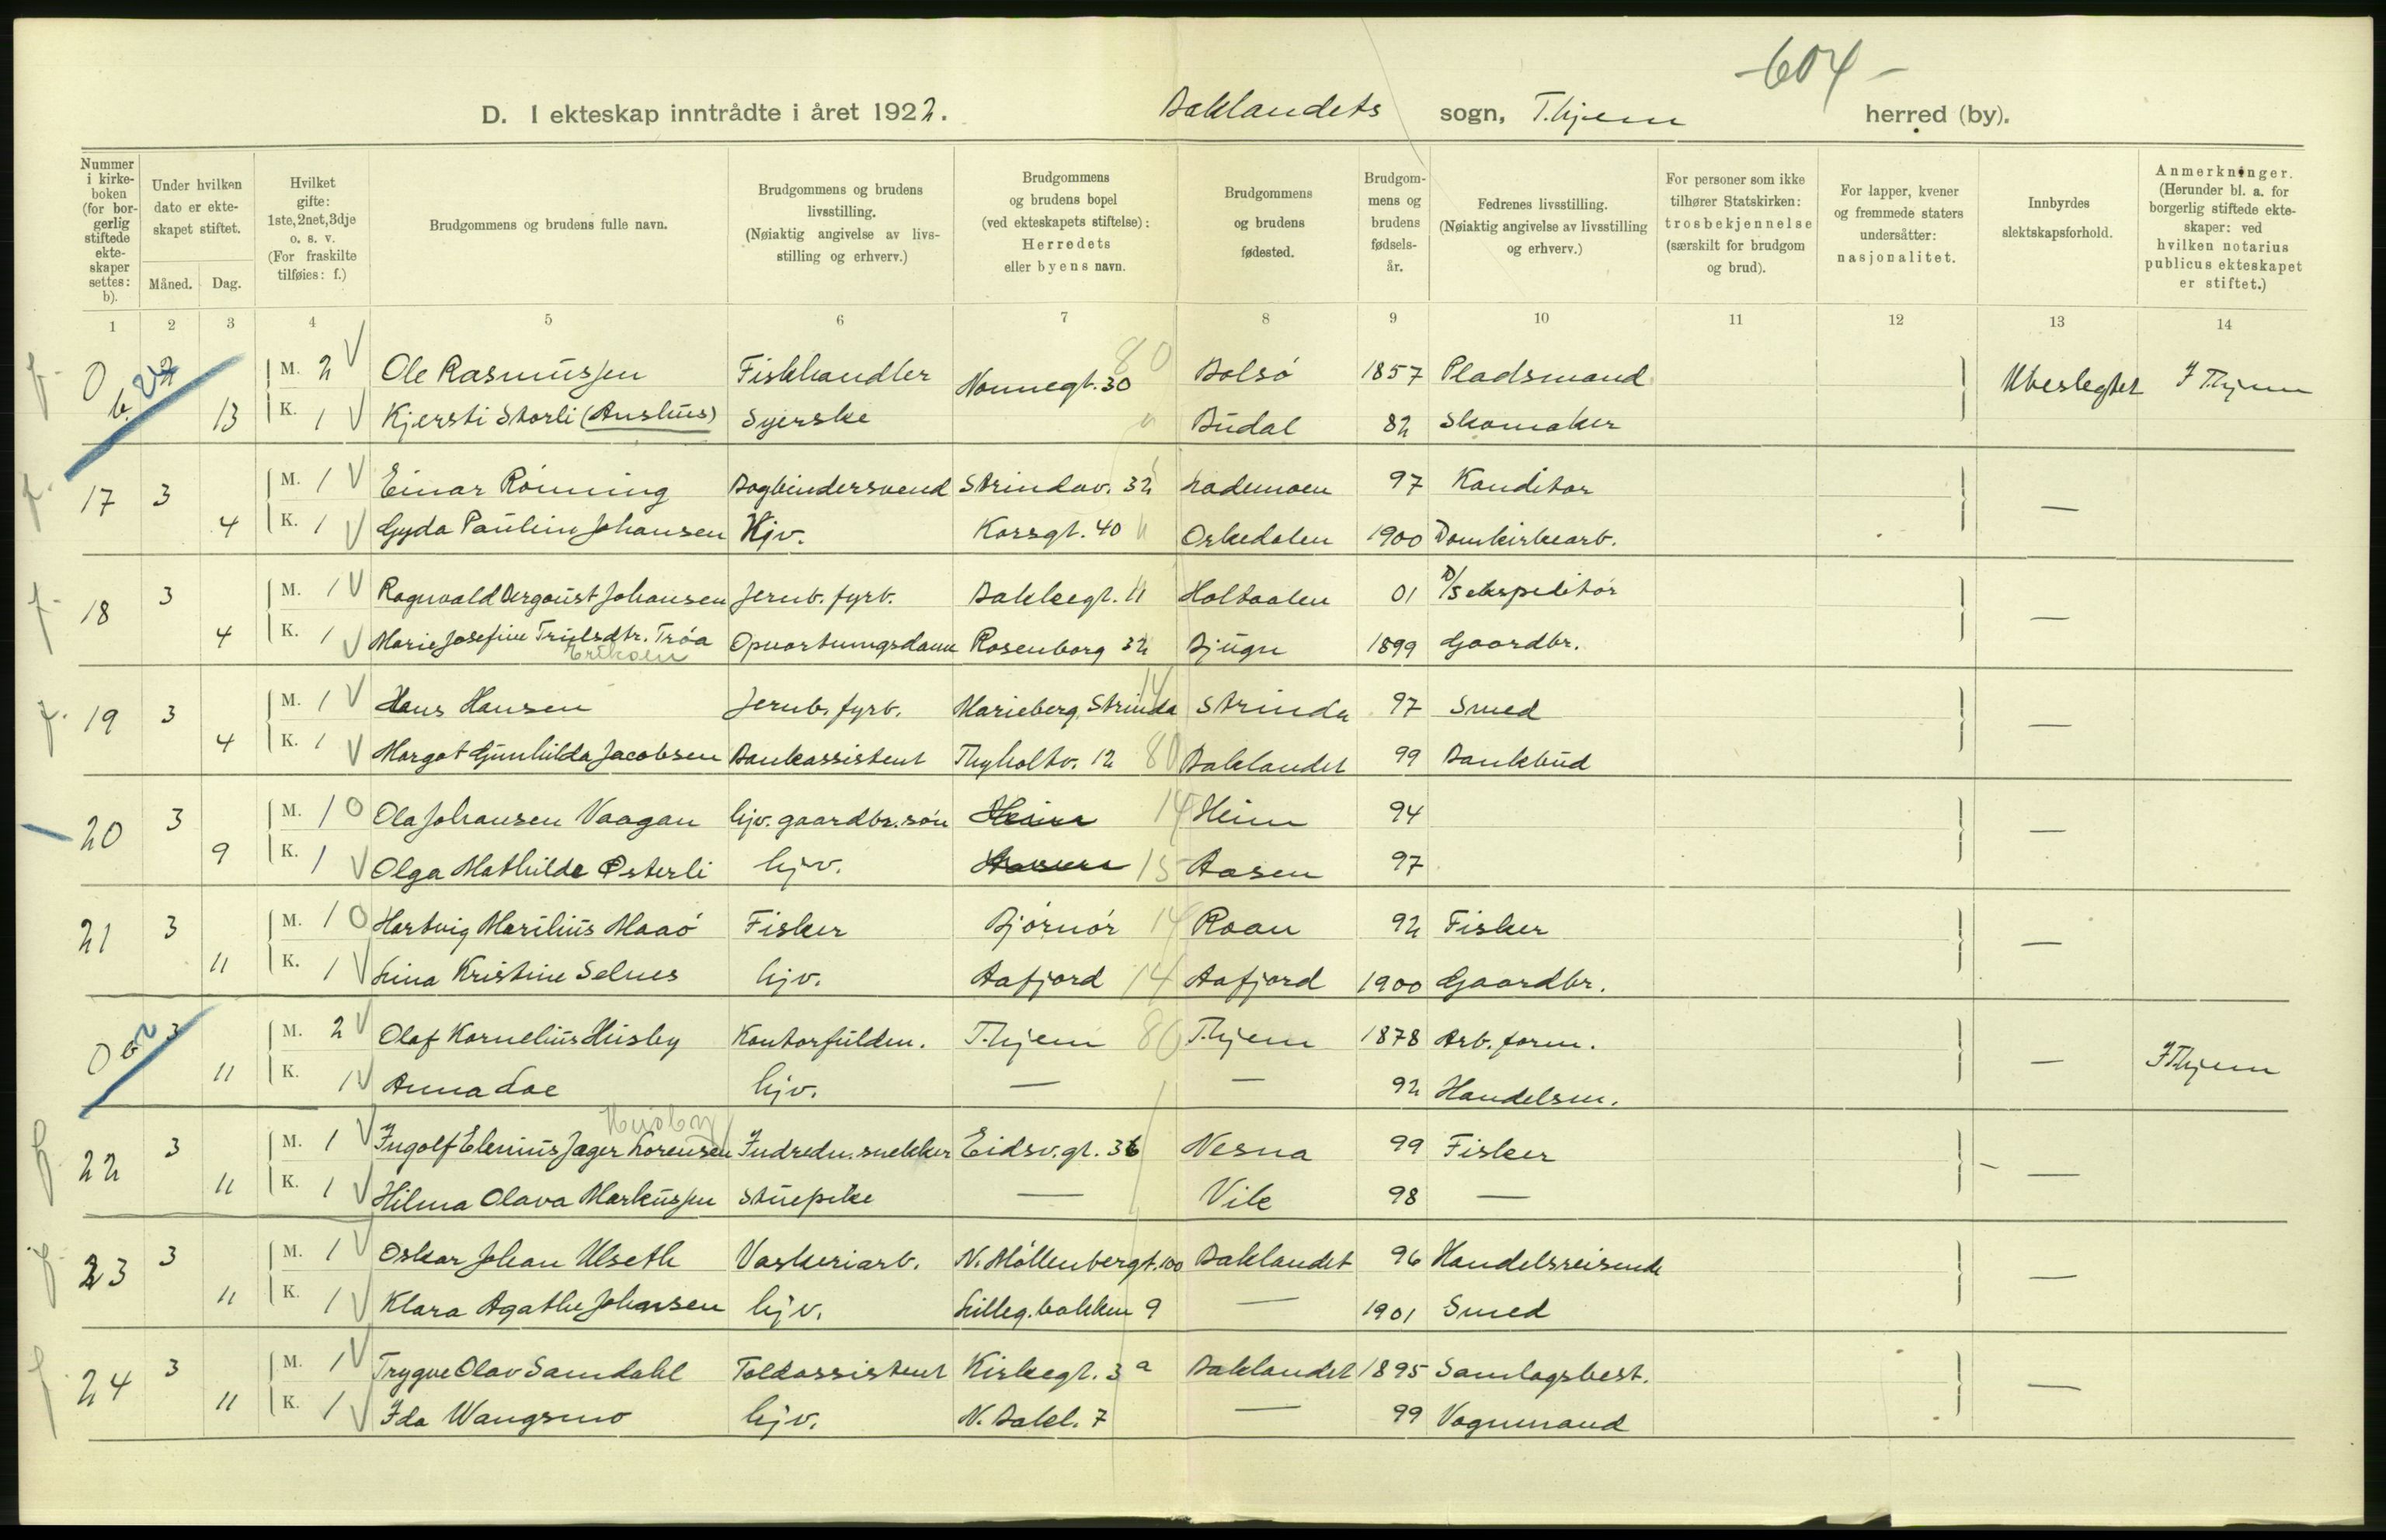 -604-
D. I ekteskap inntrådte i året 1922. Baklandets sogn, T.hjem herred (by).
Nummer i kirkeboken (for borgerlig stiftede ekteskaper settes: b).
Under hvilken dato er ekteskapet stiftet.
Måned. Dag.
Hvilket gifte: 1ste, 2net, 3dje o. s. v. (For fraskilte tilføies: f.)
Brudgommens og brudens fulle navn.
Brudgommens og brudens livsstilling. (Nøiaktig angivelse av livsstilling og erhverv.)
Brudgommens og brudens bopel (ved ekteskapets stiftelse): Herredets eller byens navn.
Brudgommens og brudens fødested.
Brudgommens og brudens fødselsår.
Fedrenes livsstilling. (Nøiaktig angivelse av livsstilling og erhverv.)
For personer som ikke tilhører Statskirken: trosbekjennelse (særskilt for brudgom og brud).
For lapper, kvener og fremmede staters undersåtter: nasjonalitet.
Innbyrdes slektskapsforhold.
Anmerkninger. (Herunder bl. a. for borgerlig stiftede ekteskaper: ved hvilken notarius publicus ekteskapet er stiftet.)
1 2 3 4 5 6 7 8 9 10 11 12 13 14
0 b. 2 M. 2 Ole Rasmussen Fiskhandler Nonnegt. 30 80 Bolsö 1857 Pladsmand Ubeslegtet I T.hjem
13 K. 1 Kjersti Storli (Aushus) Syerske " Budal 82 Skomaker
17 3 M. 1 Einar Rönning Bogbindersvend Strindav. 32 Lademoen 97 Konditor —
4 K. 1 Gyda Pauline Johansen Hjv. Korsgt. 40 Orkedalen 1900 Domkirkearb.
18 3 M. 1 Ragnvald Bergoust Johansen Jernb. fyrb. Baklegt. 11 Holtaalen 01 D/S ekspeditör —
4 K. 1 Marie Josefine Trulsdtr. Tröa Opvartningsdame Rosenborg 32 Bjugn 1899 Gaardbr.
Eriksen
19 3 M. 1 Hans Hansen Jernb. fyrb. Marieberg, Strinda 14 Strinda 97 Smed —
4 K. 1 Margot Gunhilda Jacobsen Bankassistent Thyholtv. 12 80 Baklandet 99 Bankbud
20 3 M. 1 0 Ola Johansen Vaagan hjv. gaardbr. sön Heim 14 Heim 94 —
9 K. 1 Olga Mathilde Østerli hjv. Aasen 15 Aasen 97
21 3 M. 1 0 Hartvig Marilius Maaö Fisker Björnör 14 Roan 92 Fisker —
11 K. 1 Lina Kristine Selnes hjv. Aafjord 14 Aafjord 1900 Gaardbr.
0 b. 2 3 M. 2 Olaf Kornelius Husby Kontorfuldm. T.hjem 80 T.hjem 1878 Arb. form. — I T.hjem
11 K. 1 Anna Loe hjv. — — 92 Handelsm.
Husby
22 3 M. 1 Ingolf Elenius Jager Lorensen Indredn. snekker Eidsv. gt. 36 Nesna 99 Fisker —
11 K. 1 Hilma Olava Markussen Stuepike — Vik 98 —
23 3 M. 1 Oskar Johan Ulseth Vaskeriarb. N. Möllenberggt. 100 Baklandet 96 Handelsreisende —
11 K. 1 Klara Agathe Johansen hjv. Lilleg. bakken 9 — 1901 Smed
24 3 M. 1 Trygve Olav Samdahl Toldassistent Kirkegt. 3 a Baklandet 1895 Samlagsbest. —
11 K. 1 Ida Wangsmo hjv. N. Bakl. 7 — 99 Vognmand